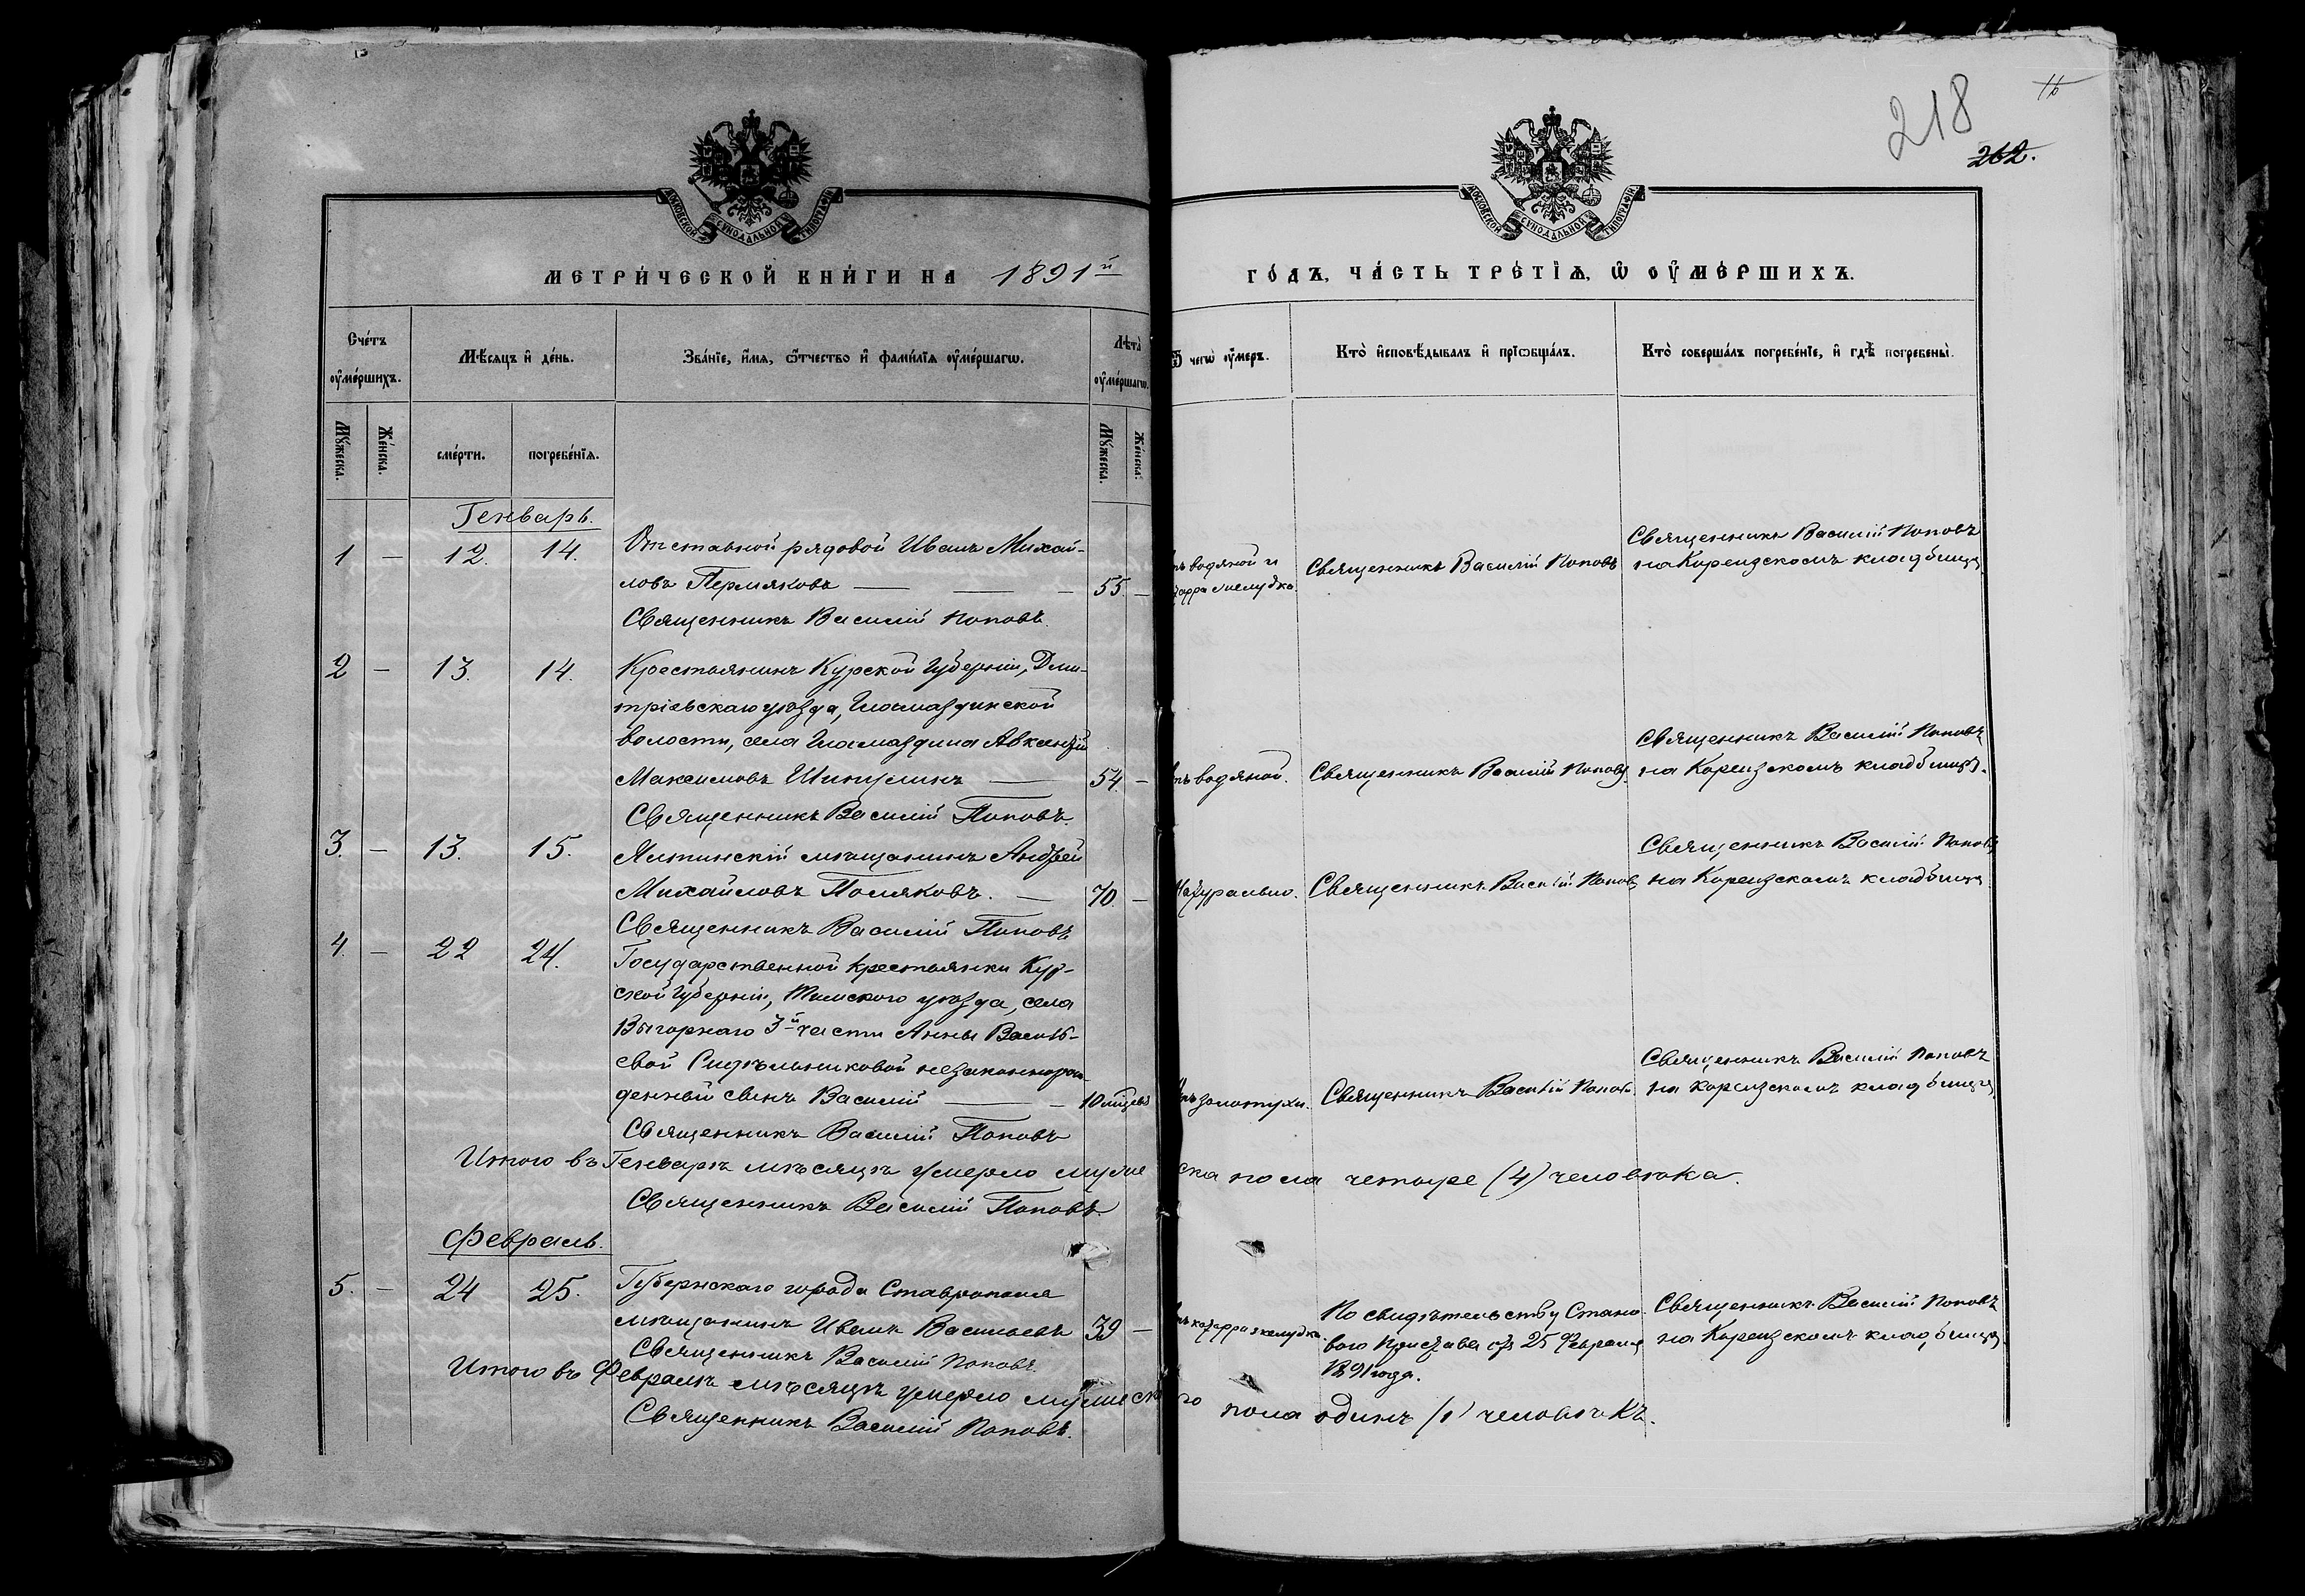 218
262.
МОСКОВСКОЙ СѴНОДАЛЬНОЙ ТИПОГРАФІИ
МОСКОВСКОЙ СѴНОДАЛЬНОЙ ТИПОГРАФІИ
МЕТРИ́ЧЕСКОЙ КНИ́ГИ НА 1891й
ГО́ДЪ, ЧА́СТЬ ТРЕ́ТІѦ, Ѡ ОУМЕ́РШИХЪ.
Сче́тъ
оуме́ршихъ.
Мѣ́сяцъ и де́нь.
Зва́ніе, и́мя, ѻ́тчество и фами́лія оуме́ршагѡ.
Лѣта̀
оуме́ршагѡ.
Ѿ чегѡ̀ оу́меръ.
Кто̀ исповѣ́дывалъ и пріѡбща́лъ.
Кто̀ соверша́лъ погребе́ніе, и гдѣ̀ погребены̀.
Му́жеска.
Же́нска.
сме́рти.
погребе́нія.
Му́жеска.
Же́нска.
Генварь.
1 — 12. 14. Отставной рядовой Иванъ Михай-
ловъ Пермяковъ — — — 55. —
Священникъ Василій Поповъ.
отъ водяной и
катарра желудка.
Священникъ Василій Поповъ
Священникъ Василій Поповъ
на Кореизскомъ кладбищѣ
2 — 13. 14. Крестьянинъ Курской Губерніи, Дми-
тріевскаго уѣзда, Гламаздинской
волости, села Гламаздина Авксентій
Максимовъ — 54. —
Священникъ Василій Поповъ.
отъ водяной.
Священникъ Василій Поповъ.
Священникъ Василій Поповъ
на Кореизскомъ кладбищѣ.
3. — 13. 15. Ялтинскій мѣщанинъ Андрей
Михайловъ Поляковъ. — 70. —
Священникъ Василій Поповъ
Натурально.
Священникъ Василій Поповъ
Священникъ Василій Поповъ
на Кореизскомъ кладбищѣ
4. — 22 24. Государственной крестьянки Кур-
ской Губерніи, Тимского уѣзда, села
Выгорнаго 3й части Анны Василь-
евой Сидѣльниковой незаконнорож-
денный сынъ Василій — — 10 мѣсяцевъ
Священникъ Василій Поповъ
Отъ золотухи.
Священникъ Василій Поповъ.
Священникъ Василій Поповъ
на Кореизскомъ кладбищѣ
Итого въ Генварѣ мѣсяцѣ умерло муже
ска пола четыре (4) человѣка.
Священникъ Василій Поповъ.
Февраль.
5. — 24 25. Губернскаго города Ставрополя
мѣщанинъ Иванъ Васильевъ 39 —
Священникъ Василій Поповъ.
отъ катарра желудка.
По свидѣтельству Стано-
вого Пристава отъ 25 Февраля
1891 года.
Священникъ Василій Поповъ
на Кореизскомъ кладбищѣ.
Итого въ Февралѣ мѣсяцѣ умерло мужеска
го пола одинъ (1) человѣкъ.
Священникъ Василій Поповъ.